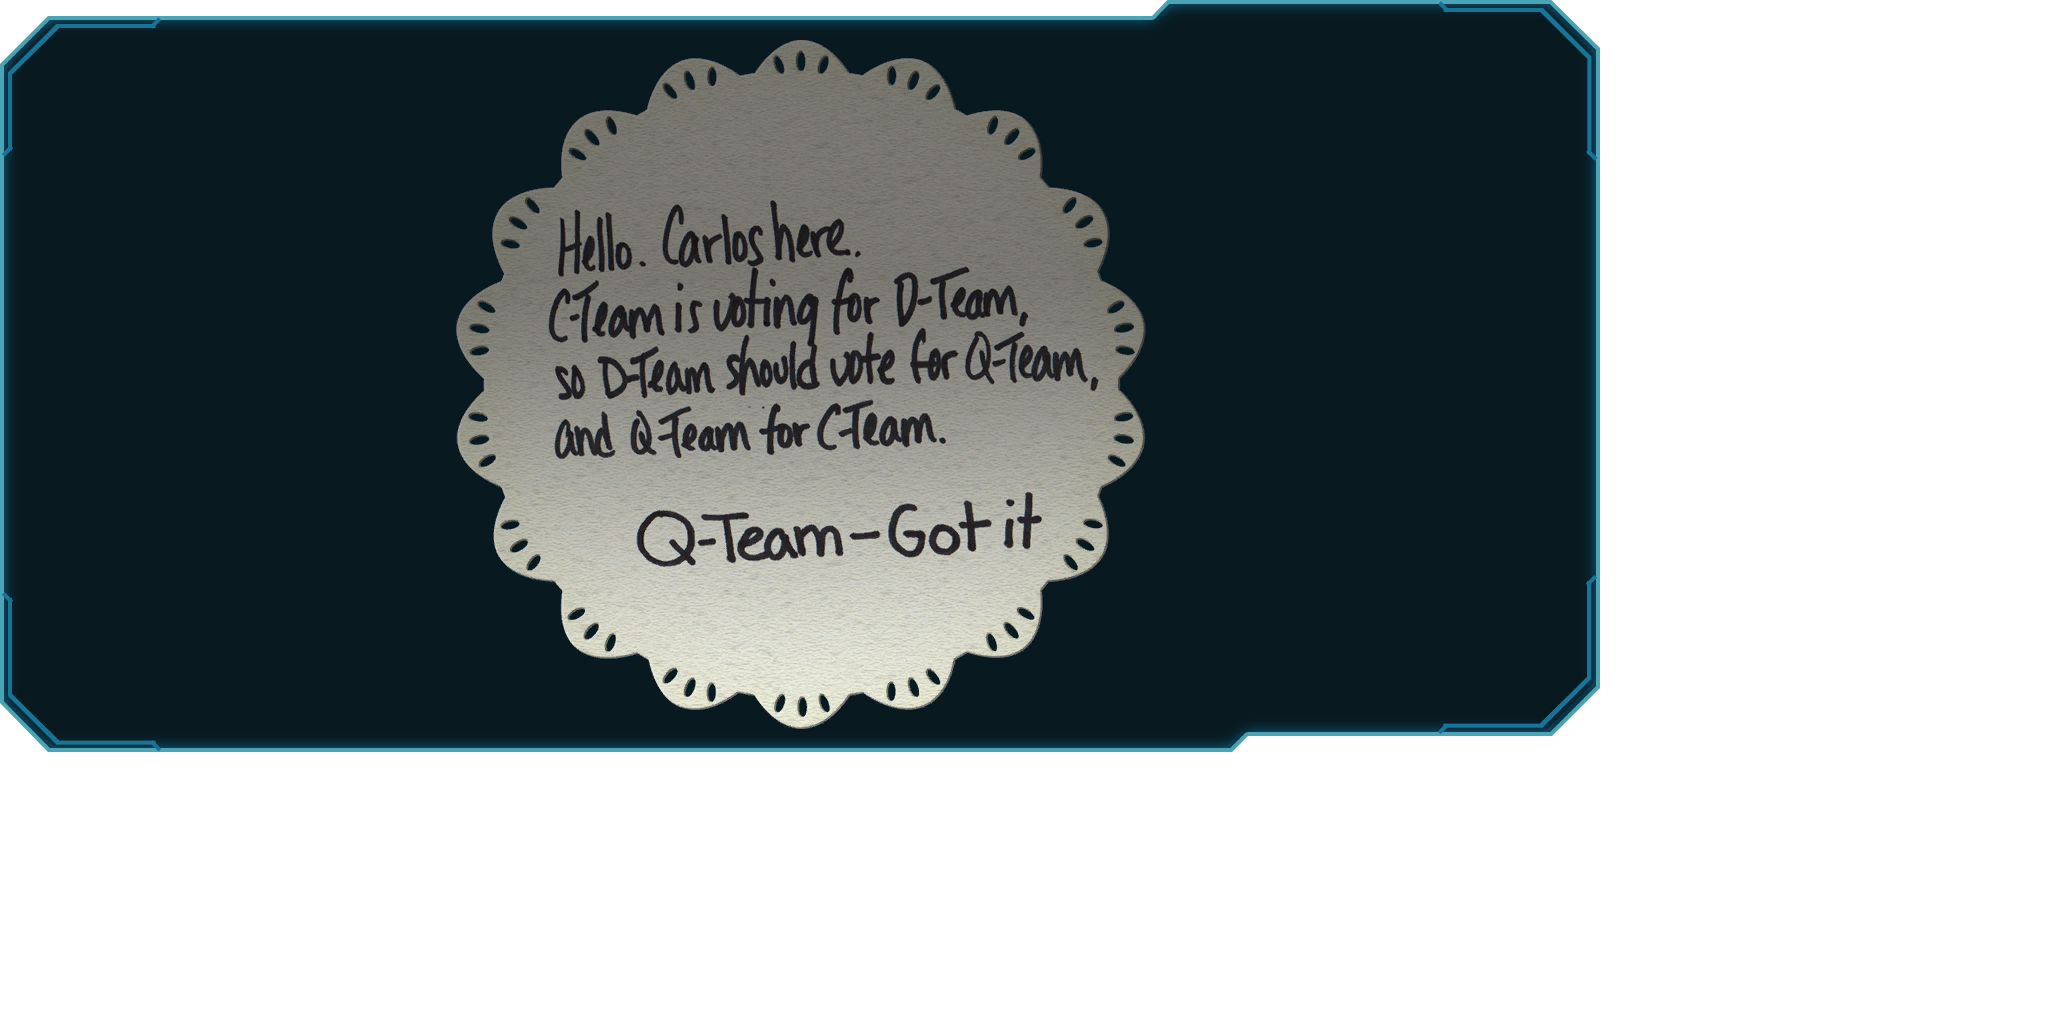 Hello. Carlos here.
C-Team is voting for D-Team,
so D-Team should vote for Q-Team,
and Q-Team for C-Team.
Q-Team-Got it